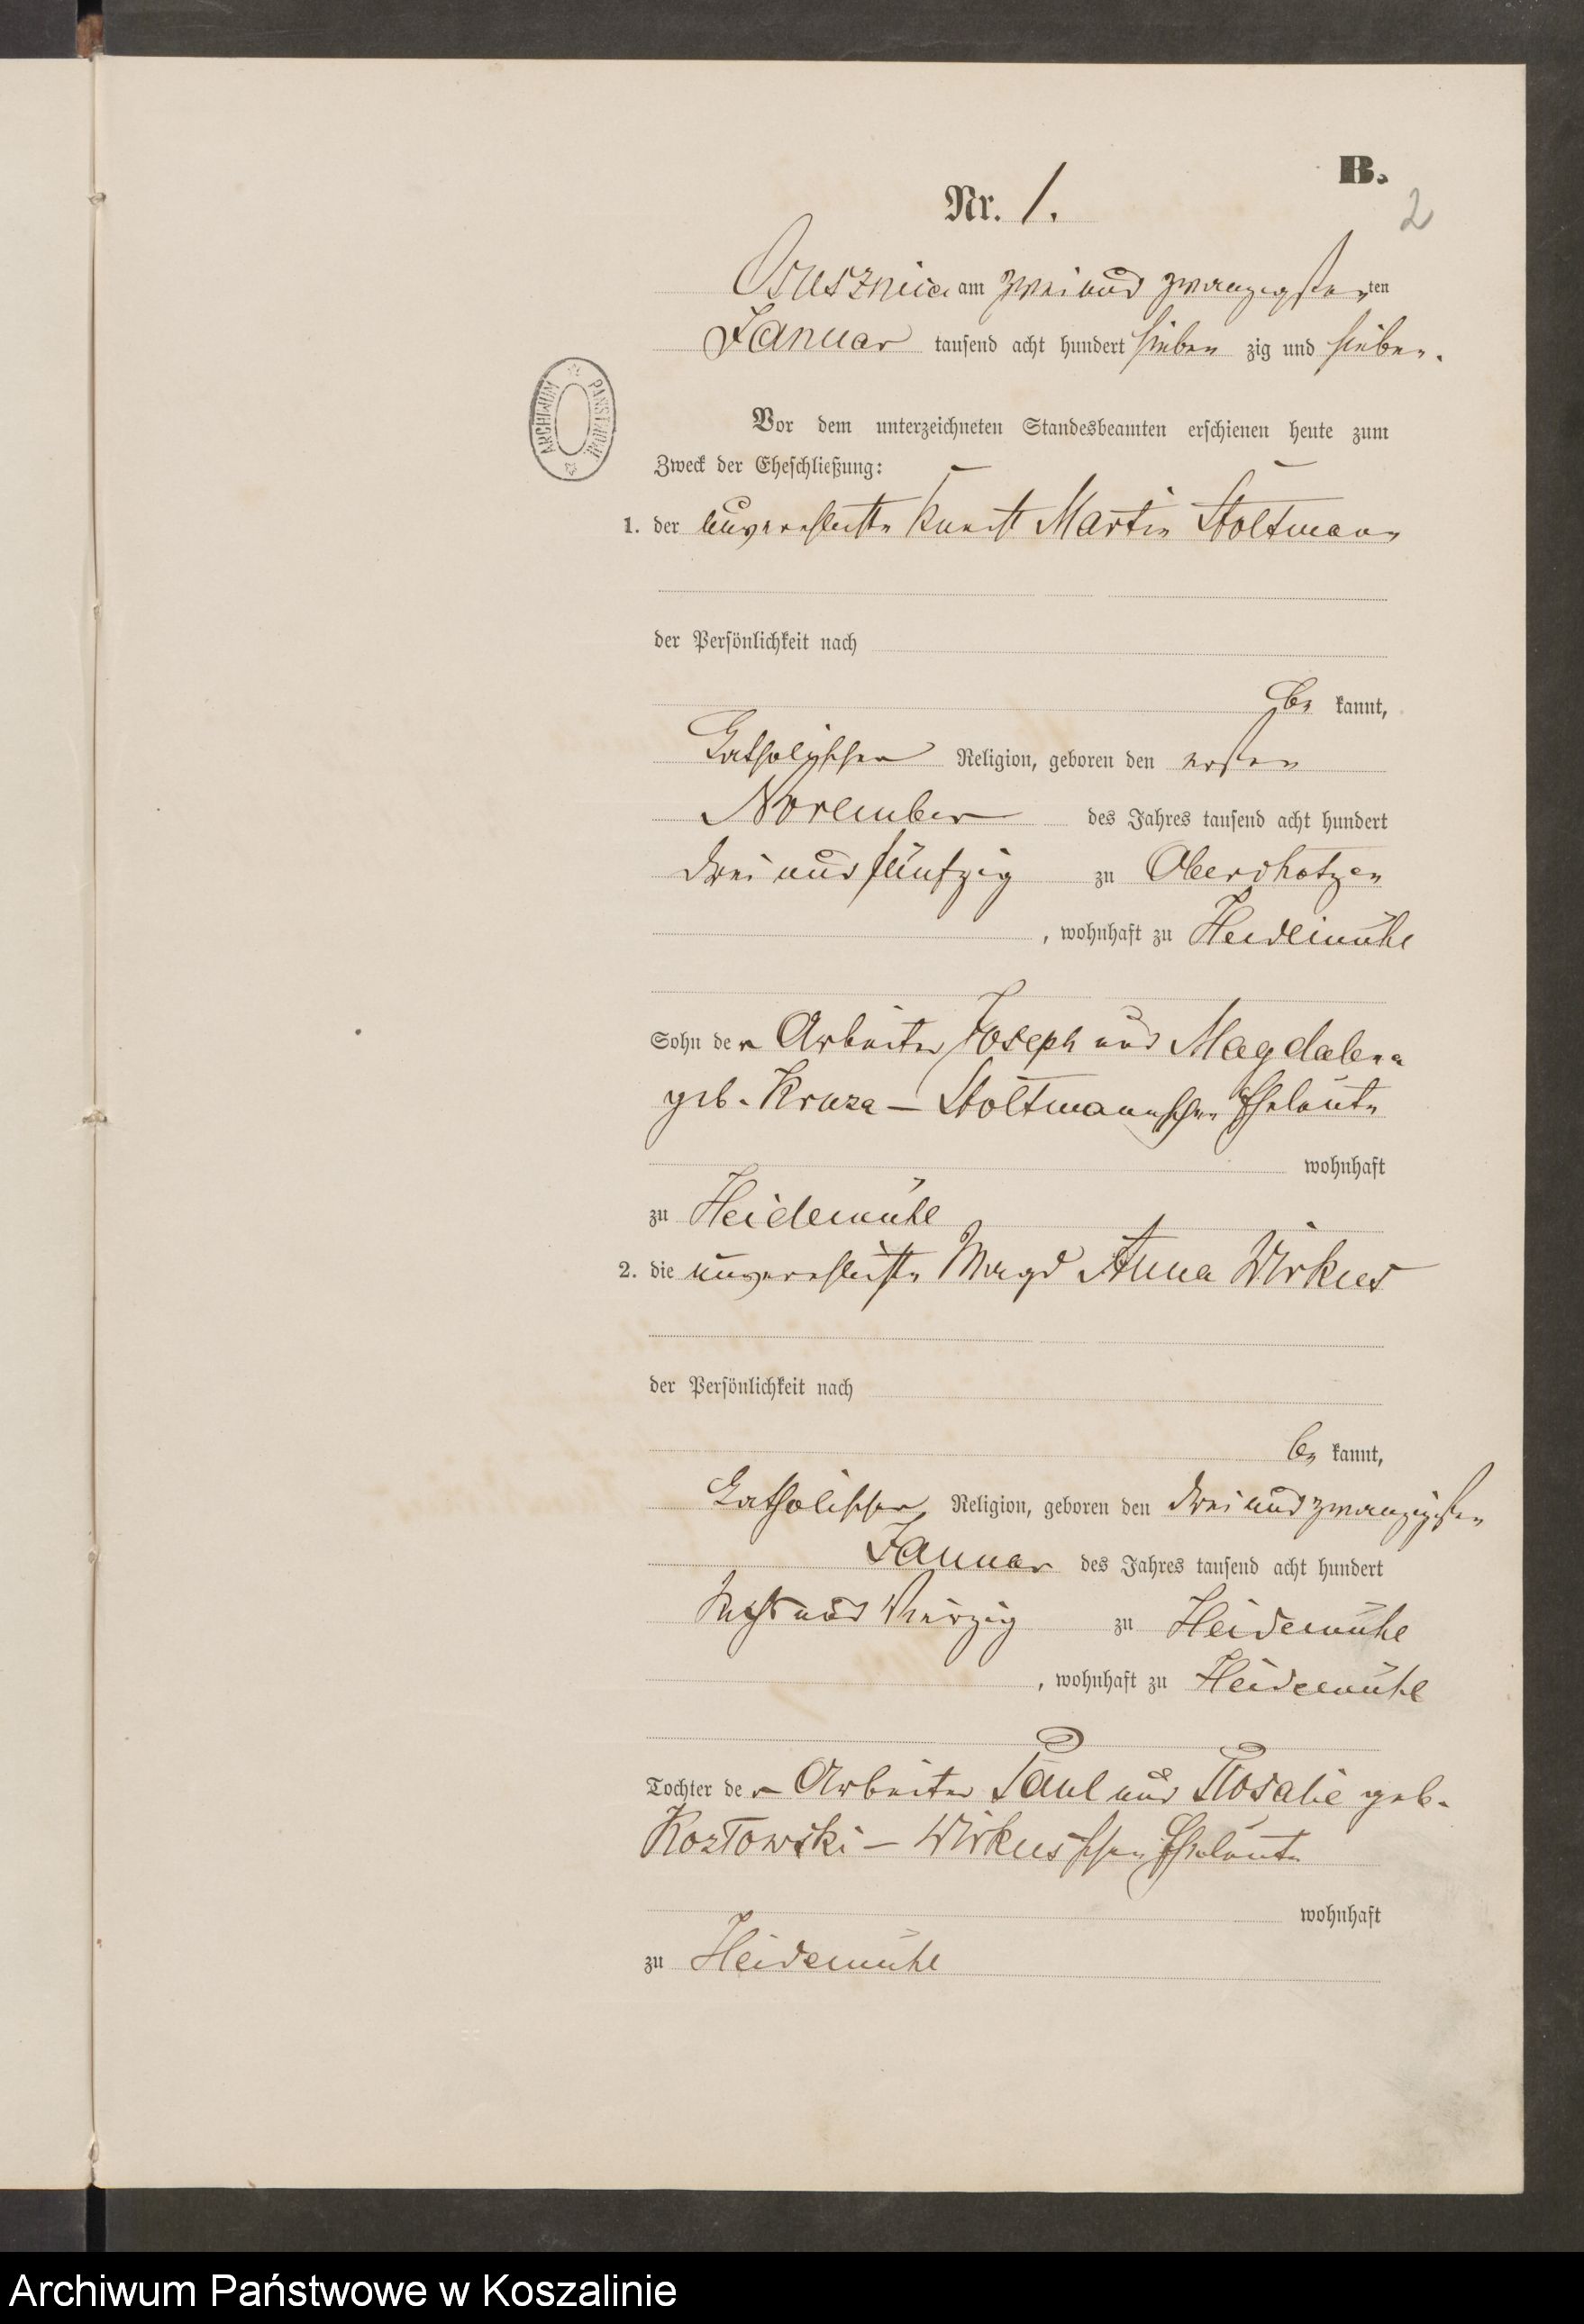 B.
Nr. 1.
2
Ossusznica am zwei und zwanzigsten ten
Januar tausend acht hundert sieben zig und sieben.
ARCHIWUM PAŃSTWOWE
Vor dem unterzeichneten Standesbeamten erschienen heute zum
Zweck der Eheschließung:
1. der unverehlichte Knecht Martin Stoltmann
der Persönlichkeit nach
be kannt,
katholischer Religion, geboren den ersten
November des Jahres tausend acht hundert
drei und fünfzig zu Oberschotzen
, wohnhaft zu Heidemühl
Sohn der Arbeiter Joseph und Magdalena
geb. Kruza – Stoltmannschen Eheleute
wohnhaft
zu Heidemühl
2. die unverehlichte Magd Anna Wirkus
der Persönlichkeit nach
be kannt,
katholischer Religion, geboren den drei und zwanzigsten
Januar des Jahres tausend acht hundert
und vierzig zu Heidemühl
, wohnhaft zu Heidemühl
Tochter der Arbeiter Paul und Rosalie geb.
Kozlowski – Wirkusschen Eheleute
wohnhaft
zu Heidemühl
Archiwum Państwowe w Koszalinie